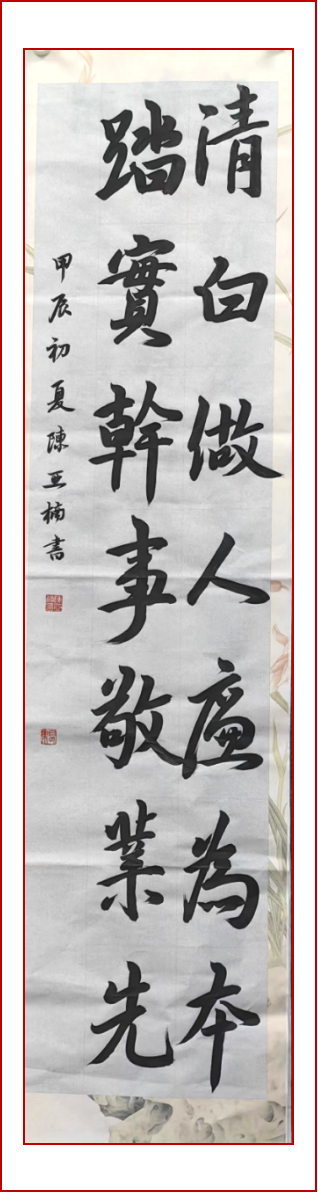 清白做人廉為本
踏實幹事敬業先
甲辰初夏陳亚楠書